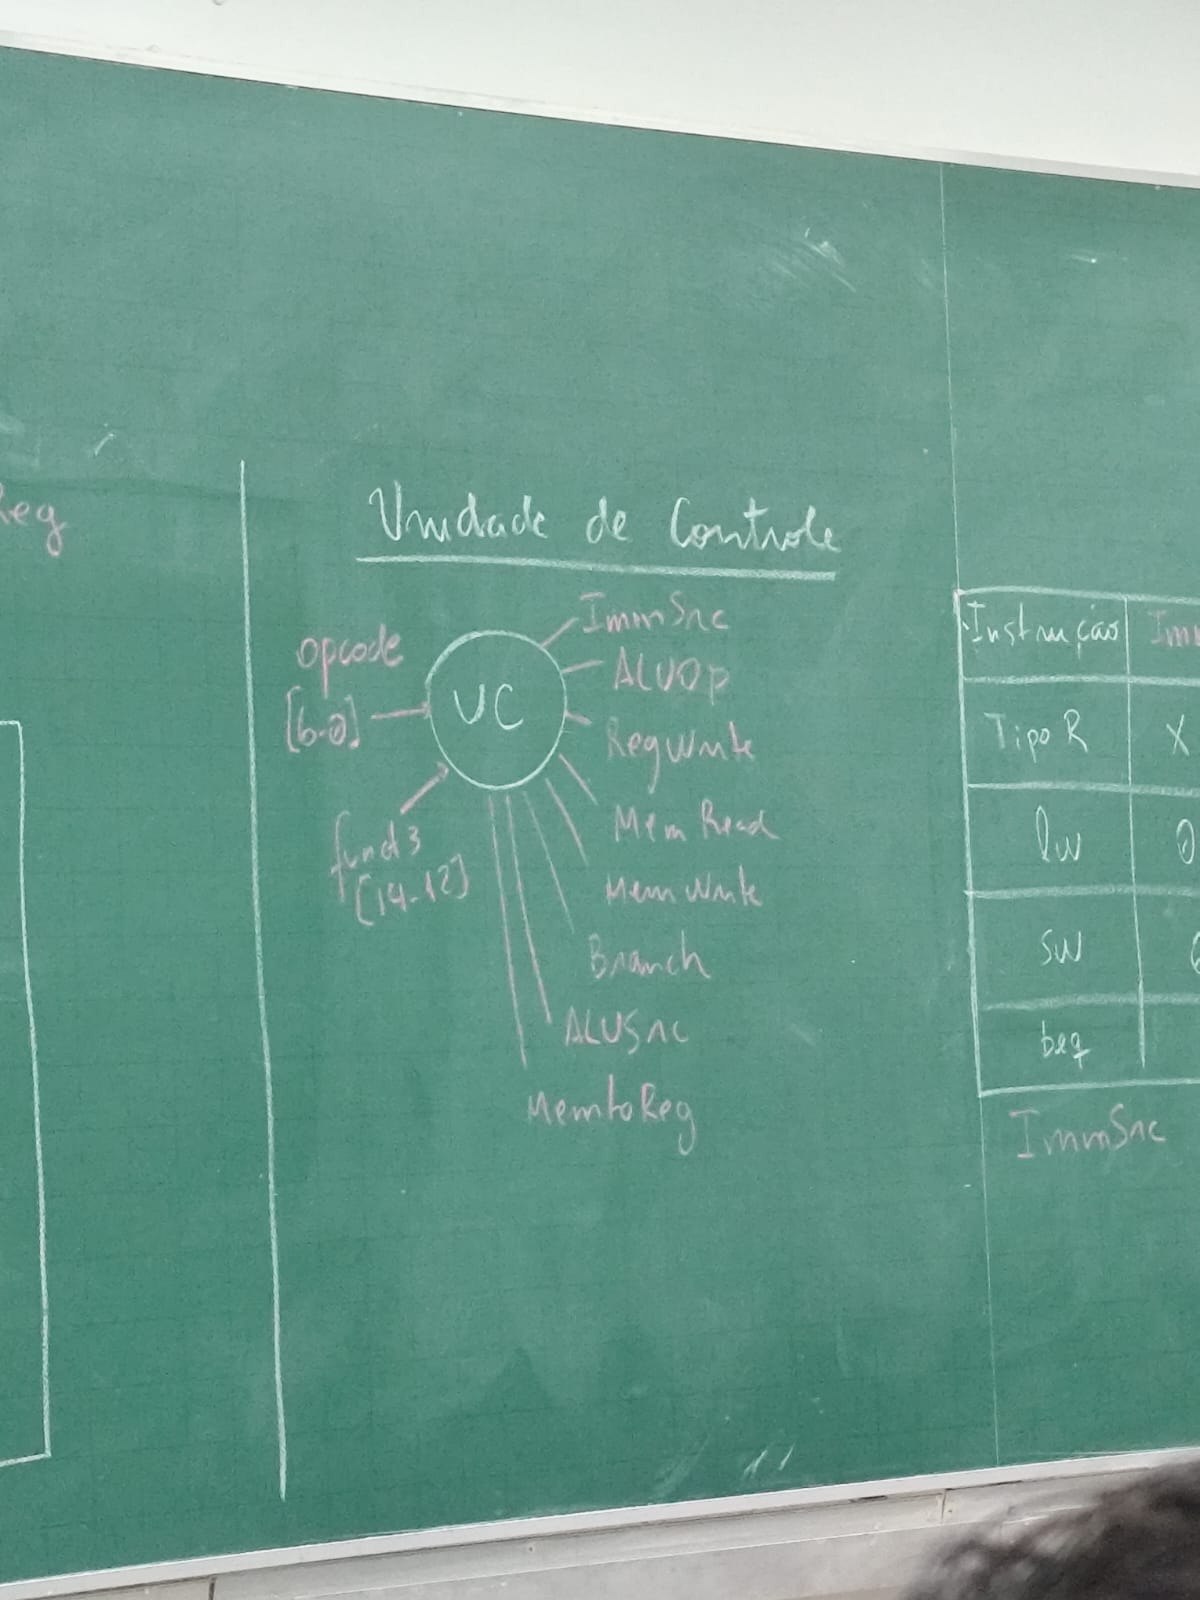 Reg
Unidade de Controle
opcode
[6-0]
UC
funct3
[14-12]
ImmSrc
ALUOp
RegWrite
Mem Read
Mem Write
Branch
ALUSrc
MemtoReg
Instrução Imm
Tipo R X
lw 0
sw
beq
ImmSrc